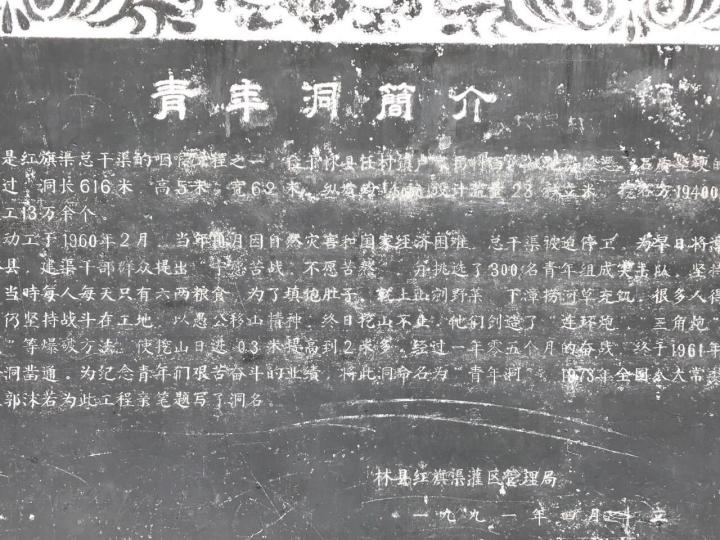 青年洞简介
是红旗渠总干渠的 工程之一 位于林县任村镇卢 险恶 石质坚硬的
过 洞长616米 高5米 宽6.2米 纵坡 设计流量23 立米 挖石方19400
工13万余个
动工于1960年2月 当年10月因自然灾害和国家经济困难 总干渠被迫停工 为早日将
县 建渠干部群众提出 宁愿苦战 不愿苦熬 挑选了300名青年组成突击队 坚持
当時每人每天只有六两粮食 为了填饱肚子 就上山剜野菜 下漳河捞河草充饥 很多人得
仍坚持战斗在工地 以愚公移山精神 终日挖山不止 他们创造了“连环炮” 三角炮
”等爆破方法 使挖山日进 0.3米提高到2米多 经过一年零五个月的奋战 终于1961年
洞凿通 为纪念青年们艰苦奋斗的业绩 将此洞命名为“青年洞” 1973年全国人大常
郭沫若为此工程亲笔题写了洞名
林县红旗渠灌区管理局
一九九一年四月 立